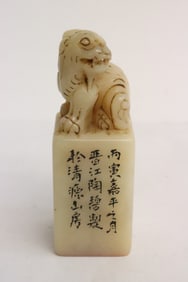 丙寅嘉平之月
晋江陶碧製
於清源山房